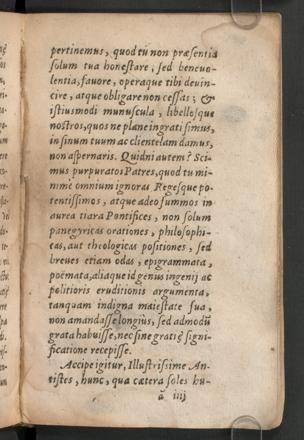 pertinemus, quod tu non præsentia
solum tua honestare, sed beneuo-
lentia, fauore, operaque tibi deuin-
cire, atque obligare non cessas; &
istiusmodi munuscula, libellosque
nostros, quos ne plane ingrati simus,
in sinum tuum ac clientelam damus,
non aspernaris. Quidni autem? Sci-
mus purpuratos Patres, quod tu mi-
nimè omnium ignoras Regesque po-
tentissimos, atque adeo summos in
aurea tiara Pontifices, non solum
panegyricas orationes, philosophi-
cas, aut theologicas positiones, sed
breues etiam odas, epigrammata,
poëmata, aliaque id genus ingenij ac
politioris eruditionis argumenta,
tanquam indigna maiestate sua,
non amandasse longius, sed admodũ
grata habuisse, nec sine gratię signi-
ficatione recepisse.
Accipe igitur, Illustrissime An-
tistes, hunc, qua cætera soles hu-
ã iiij